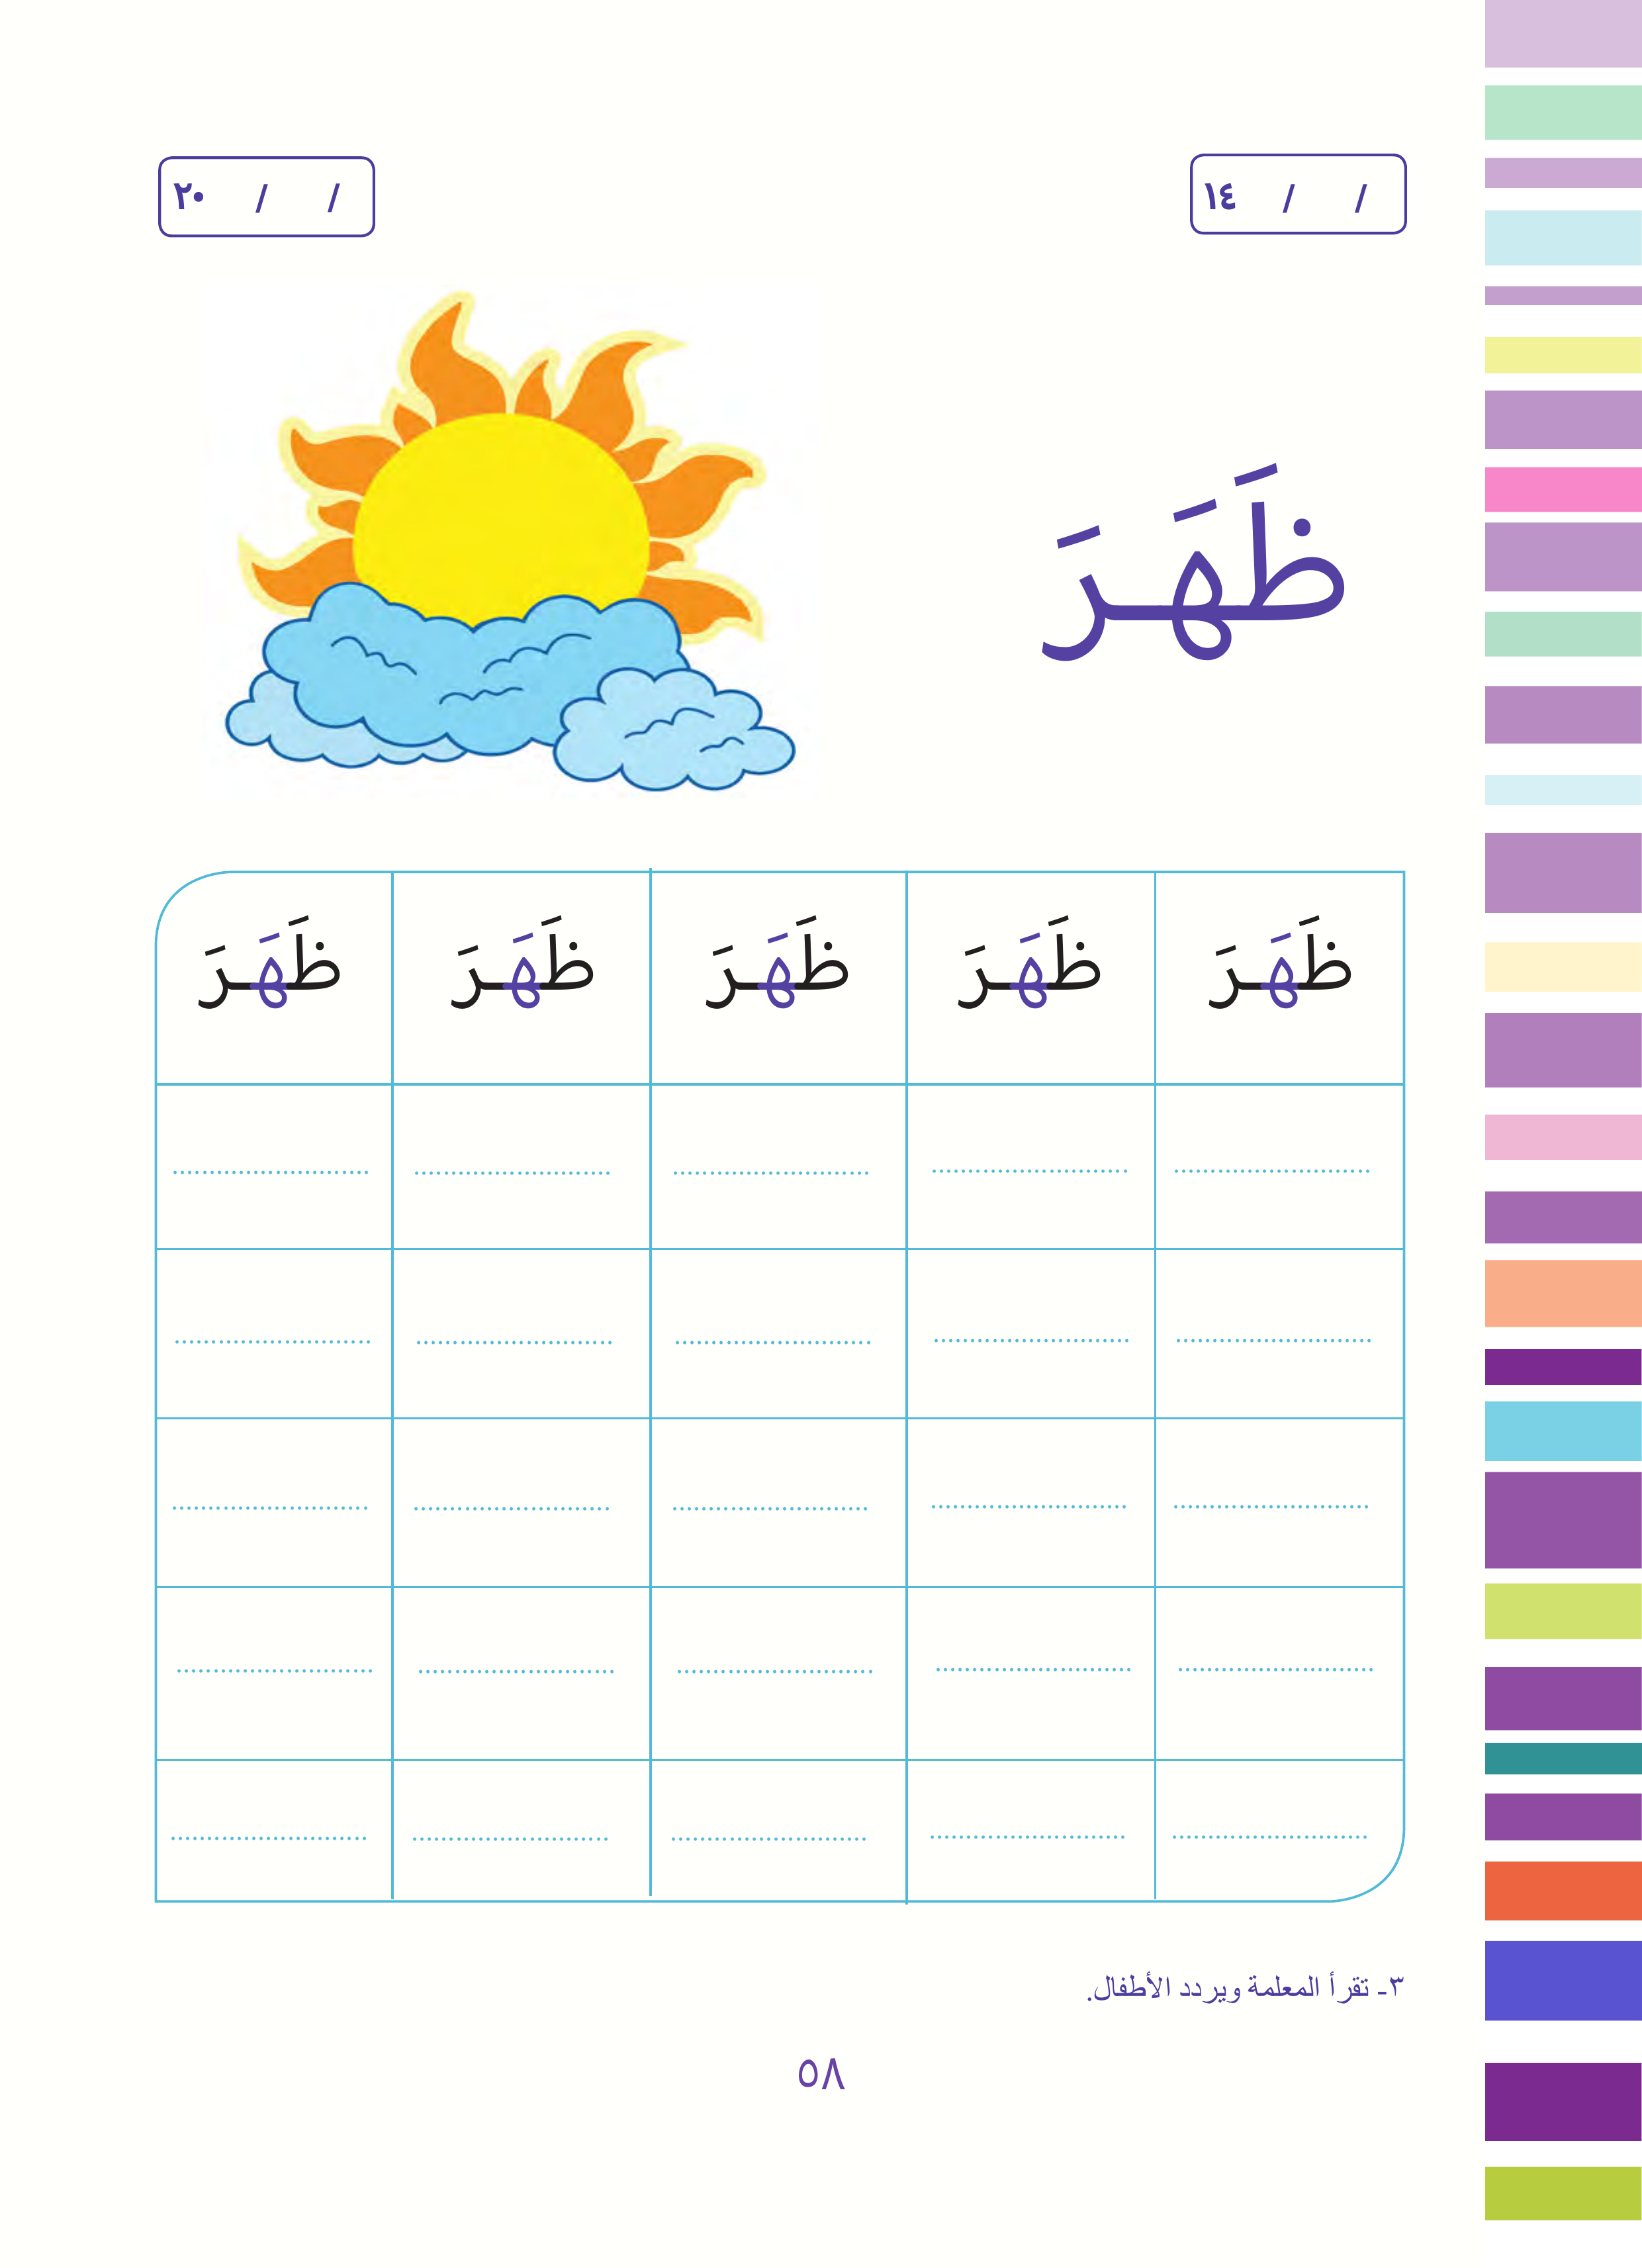 / / ١٤
/ / ٢٠
ظَهَرَ
ظَهَرَ ظَهَرَ ظَهَرَ ظَهَرَ ظَهَرَ
٣- تقرأ المعلمة ويردد الأطفال.
٥٨